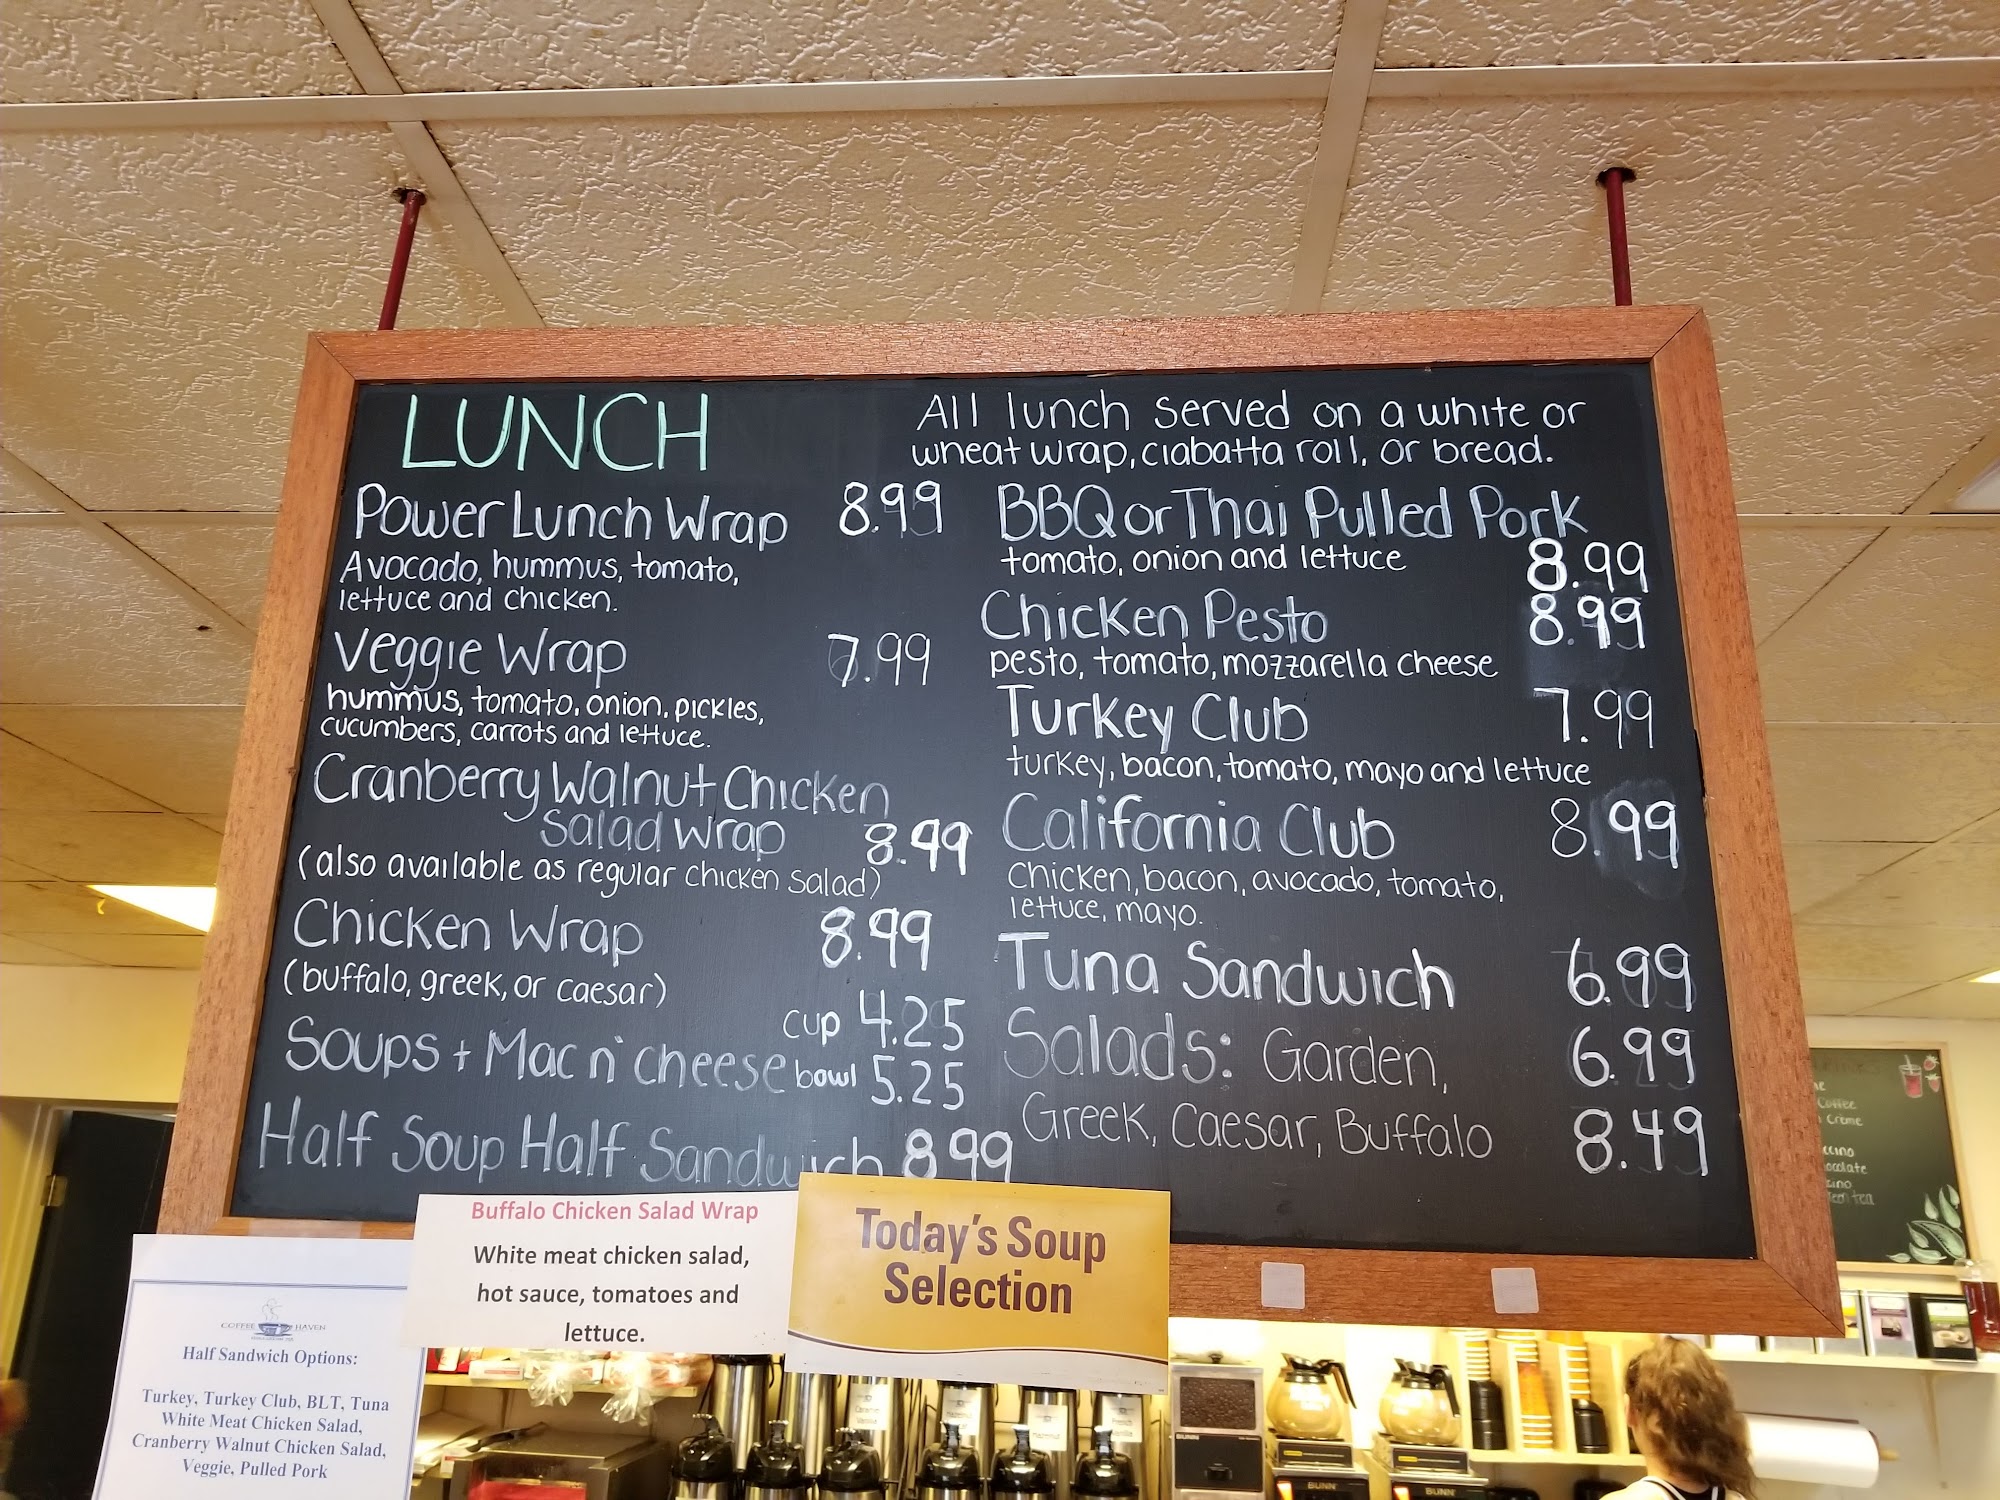 LUNCH
All lunch served on a white or
wheat wrap, ciabatta roll, or bread.
Power Lunch Wrap 8.99
Avocado, hummus, tomato,
lettuce and chicken.
Veggie Wrap 7.99
hummus, tomato, onion, pickles,
cucumbers, carrots and lettuce.
Cranberry Walnut Chicken
Salad Wrap 8.49
(also available as regular chicken salad)
Chicken Wrap 8.99
(buffalo, greek, or caesar)
cup 4.25
Soups + Mac n' cheese bowl 5.25
Half Soup Half Sandwich 8.99
BBQ or Thai Pulled Pork
tomato, onion and lettuce 8.99
Chicken Pesto 8.99
pesto, tomato, mozzarella cheese
Turkey Club 7.99
turkey, bacon, tomato, mayo and lettuce
California Club 8.99
Chicken, bacon, avocado, tomato,
lettuce, mayo.
Tuna Sandwich 6.99
Salads: Garden, 6.99
Greek, Caesar, Buffalo 8.49
Buffalo Chicken Salad Wrap
White meat chicken salad,
hot sauce, tomatoes and
lettuce.
Today's Soup
Selection
COFFEE HAVEN
Half Sandwich Options:
Turkey, Turkey Club, BLT, Tuna
White Meat Chicken Salad,
Cranberry Walnut Chicken Salad,
Veggie, Pulled Pork
Coffee
Crème
BUNN
BUNN
BUNN